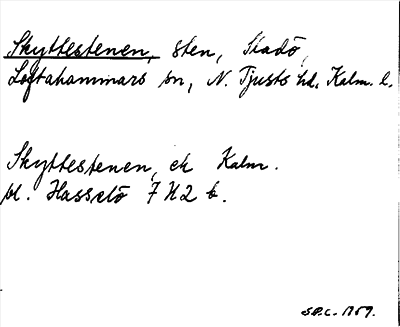 Skyttestenen, sten, Stadö,
Loftahammars sn, N. Tjusts hd, Kalm. l.
Skyttestenen, ek Kalm.
bl. Hasselö 7 H 2 b.
S.P.C. 1959.